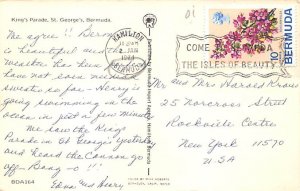 King's Parade, St. George's, Bermuda.
We agree !! Bermuda
is beautiful and the
weather has been
have not even needed
sweats so far. Henry is
going swimming in the
ocean in just a few minutes
We saw the Kings
Parade in St George's yesterday
and heard the Cannon go
off - Bang - o !!
Edna and Henry
BDA164
HAMILTON
BERMUDA
COME TO BERMUDA
THE ISLES OF BEAUTY
BERMUDA
10
Mr and Mrs Harold Kraus
25 Norcross Street
Rockville Centre
New York 11570
USA